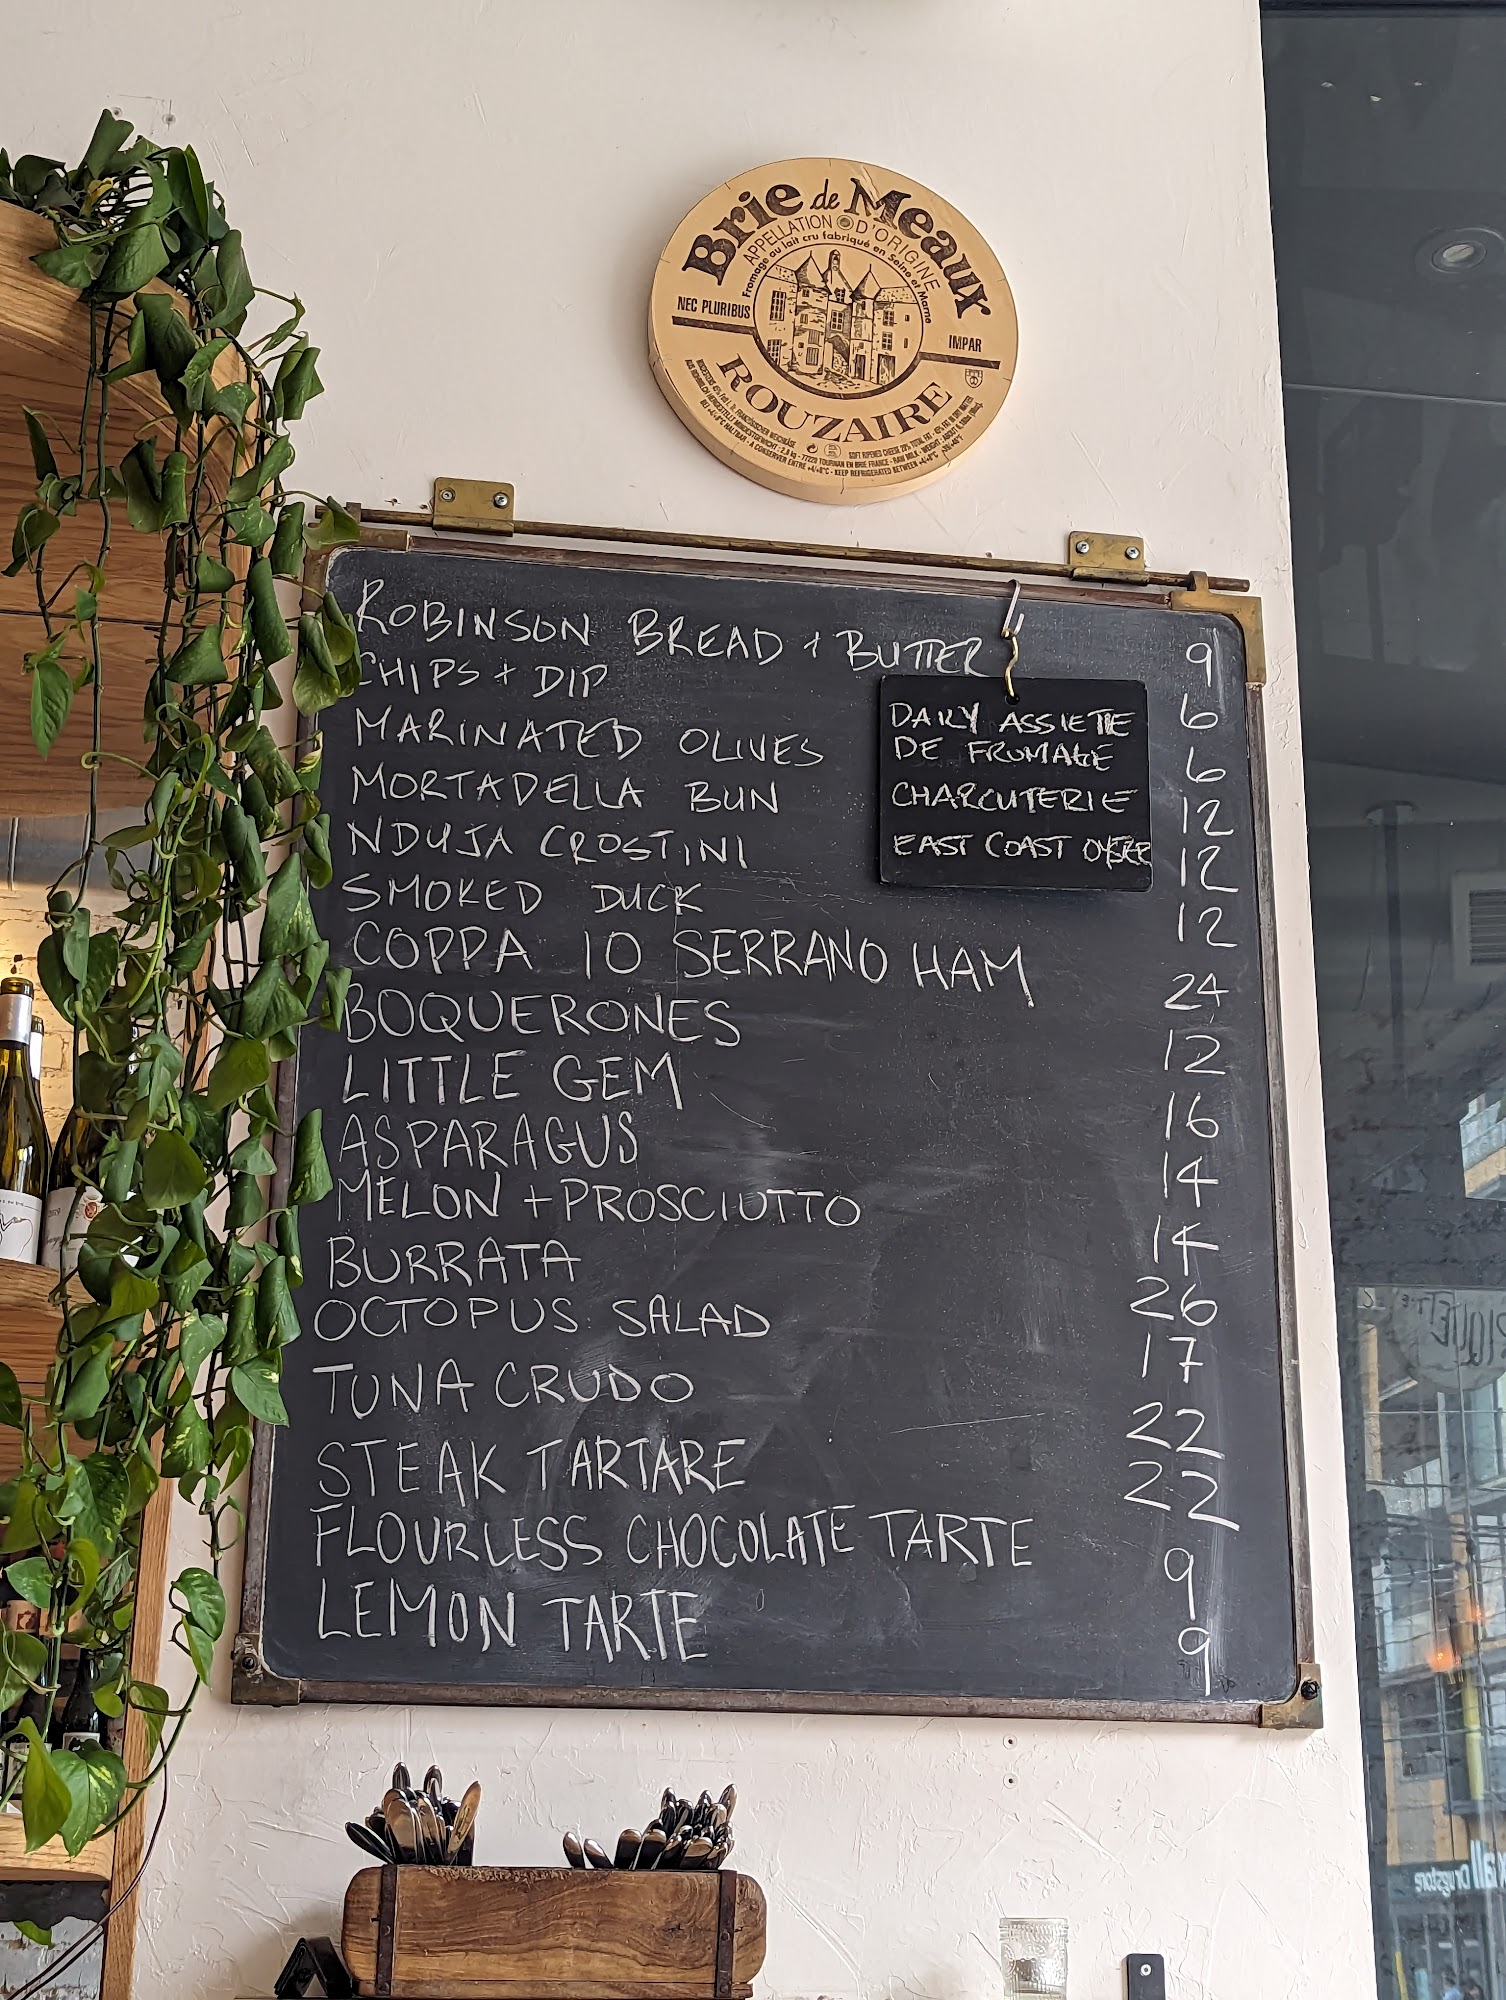 Brie de Meaux
APPELLATION D'ORIGINE
Fromage au lait cru fabriqué en Seine et Marne
NEC PLURIBUS
IMPAR
ROUZAIRE
ROBINSON BREAD + BUTTER 9
CHIPS + DIP 6
MARINATED OLIVES 6
MORTADELLA BUN 12
NDUJA CROSTINI 12
SMOKED DUCK 12
COPPA 10 SERRANO HAM 24
BOQUERONES 12
LITTLE GEM 16
ASPARAGUS 14
MELON + PROSCIUTTO 14
BURRATA 26
OCTOPUS SALAD 17
TUNA CRUDO 22
STEAK TARTARE 22
FLOURLESS CHOCOLATE TARTE 9
LEMON TARTE 9
DAILY ASSIETTE
DE FROMAGE
CHARCUTERIE
EAST COAST
Drugstore